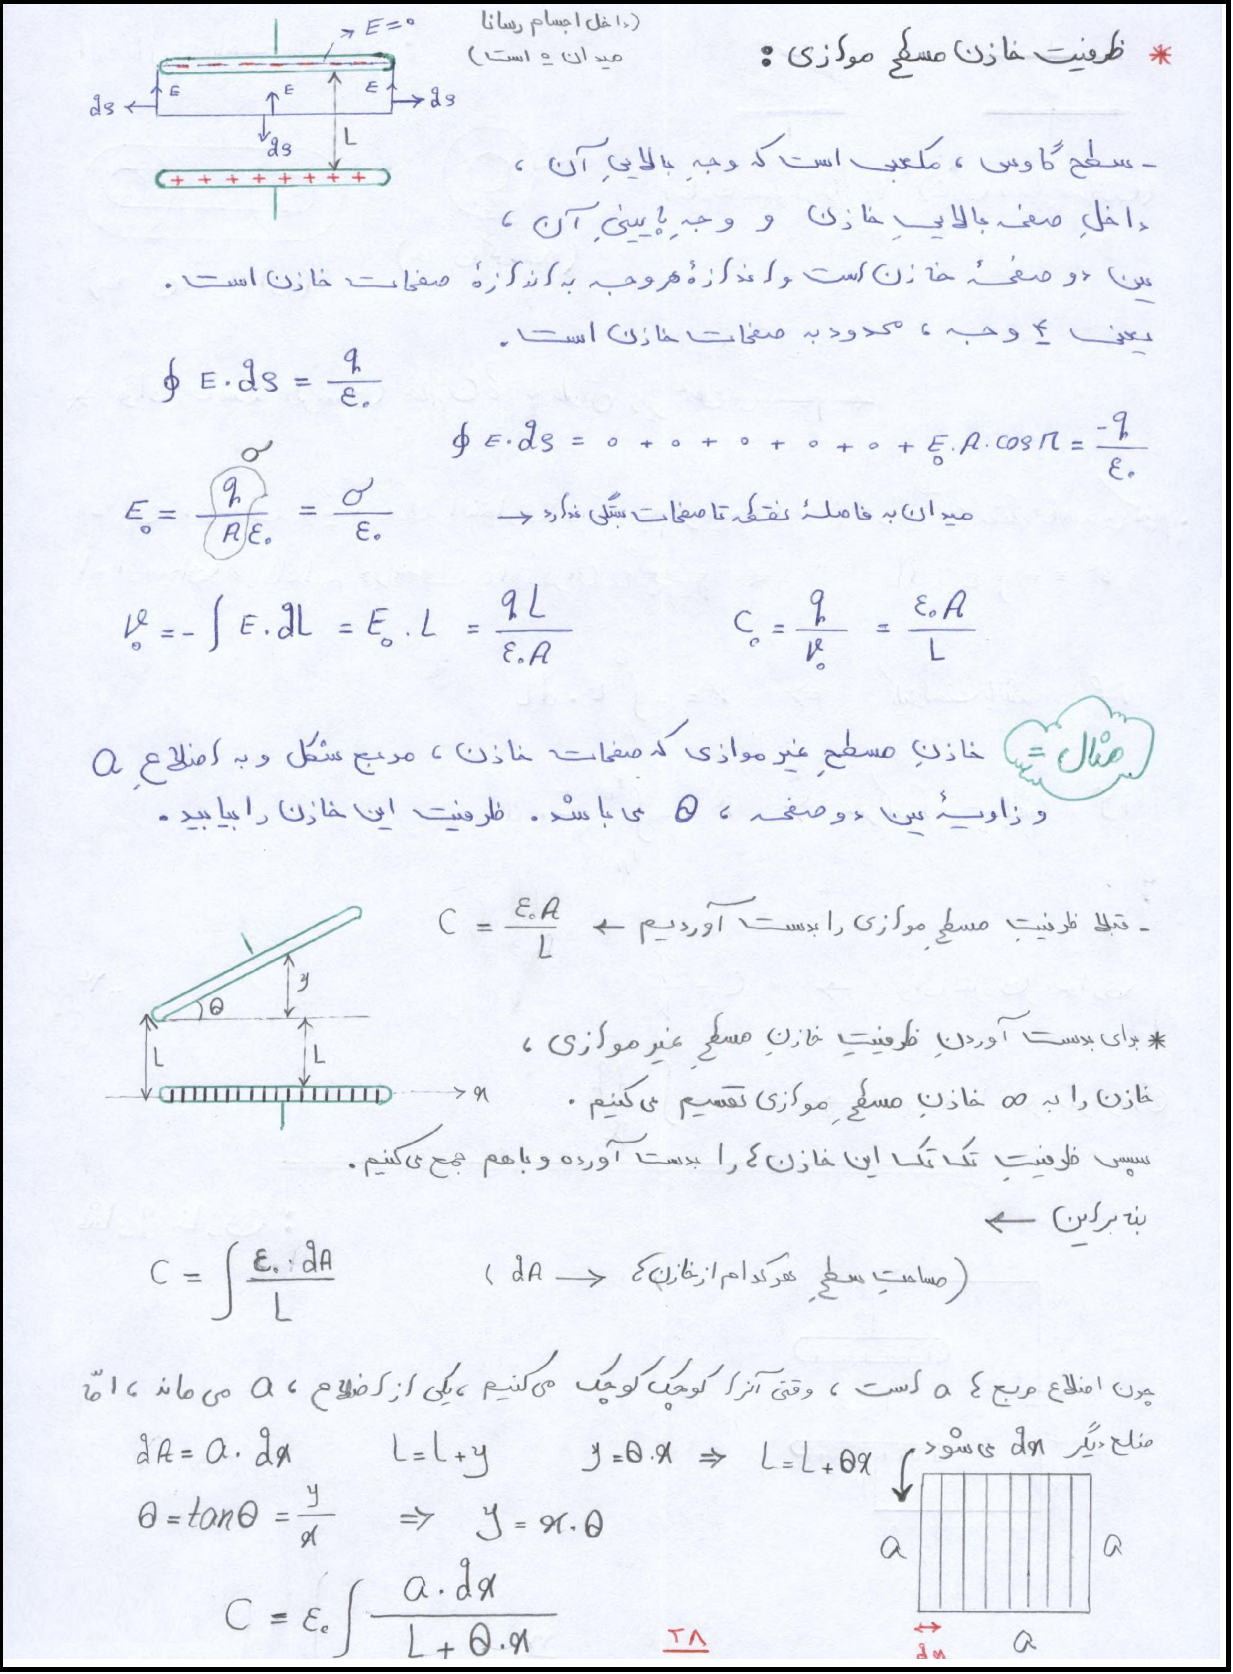 * ظرفیت خازن مسطح موازی :
(داخل اجسام رسانا
میدان ه است)
E=0
E E E
ds ds
ds
L
+ + + + + + + +
- سطح گاوس ، مکعبی است که وجهِ بالاییِ آن ،
داخلِ صفحه بالاییِ خازن و وجهِ پایینیِ آن ،
بین دو صفحهٔ خازن است و اندازهٔ هر وجه به اندازهٔ صفحات خازن است .
یعنی ۴ وجه ، محدود به صفحات خازن است .
∮ E.ds = q/ε₀
∮ E.ds = 0 + 0 + 0 + 0 + 0 + E₀.A.cosπ = -q/ε₀
σ
E₀ = q/Aε₀ = σ/ε₀
میدان به فاصلهٔ نقطه تا صفحات بستگی ندارد →
V₀ = - ∫ E.dL = E₀.L = qL/ε₀A
C₀ = q/V₀ = ε₀A/L
مثال = خازنِ مسطحِ غیر موازی که صفحات خازن ، مربع شکل و به اضلاعِ a
و زاویهٔ بین دو صفحه ، θ می باشد . ظرفیت این خازن را بیابید .
- قبلا ظرفیتِ مسطحِ موازی را بدست آوردیم ← C = ε₀A/L
θ y
L L
x
* برای بدست آوردنِ ظرفیتِ خازنِ مسطحِ غیر موازی ،
خازن را به ∞ خازنِ مسطحِ موازی تقسیم می کنیم .
سپس ظرفیتِ تک تک این خازن ها را بدست آورده و با هم جمع می کنیم .
بنابراین ←
C = ∫ ε₀.dA/L
(مساحتِ سطحِ هر کدام از خازن ها ← dA )
چون اضلاع مربع ها a است ، وقتی آنرا کوچک کوچک می کنیم ، یکی از اضلاع ، a می ماند ، امّا
ضلع دیگر dx می شود
dA = a.dx L = L+y y = θ.x ⇒ L = L+θx
θ = tanθ = y/x ⇒ y = x.θ
a a
C = ε₀ ∫ a.dx/L + θ.x
dx
a
۲۸